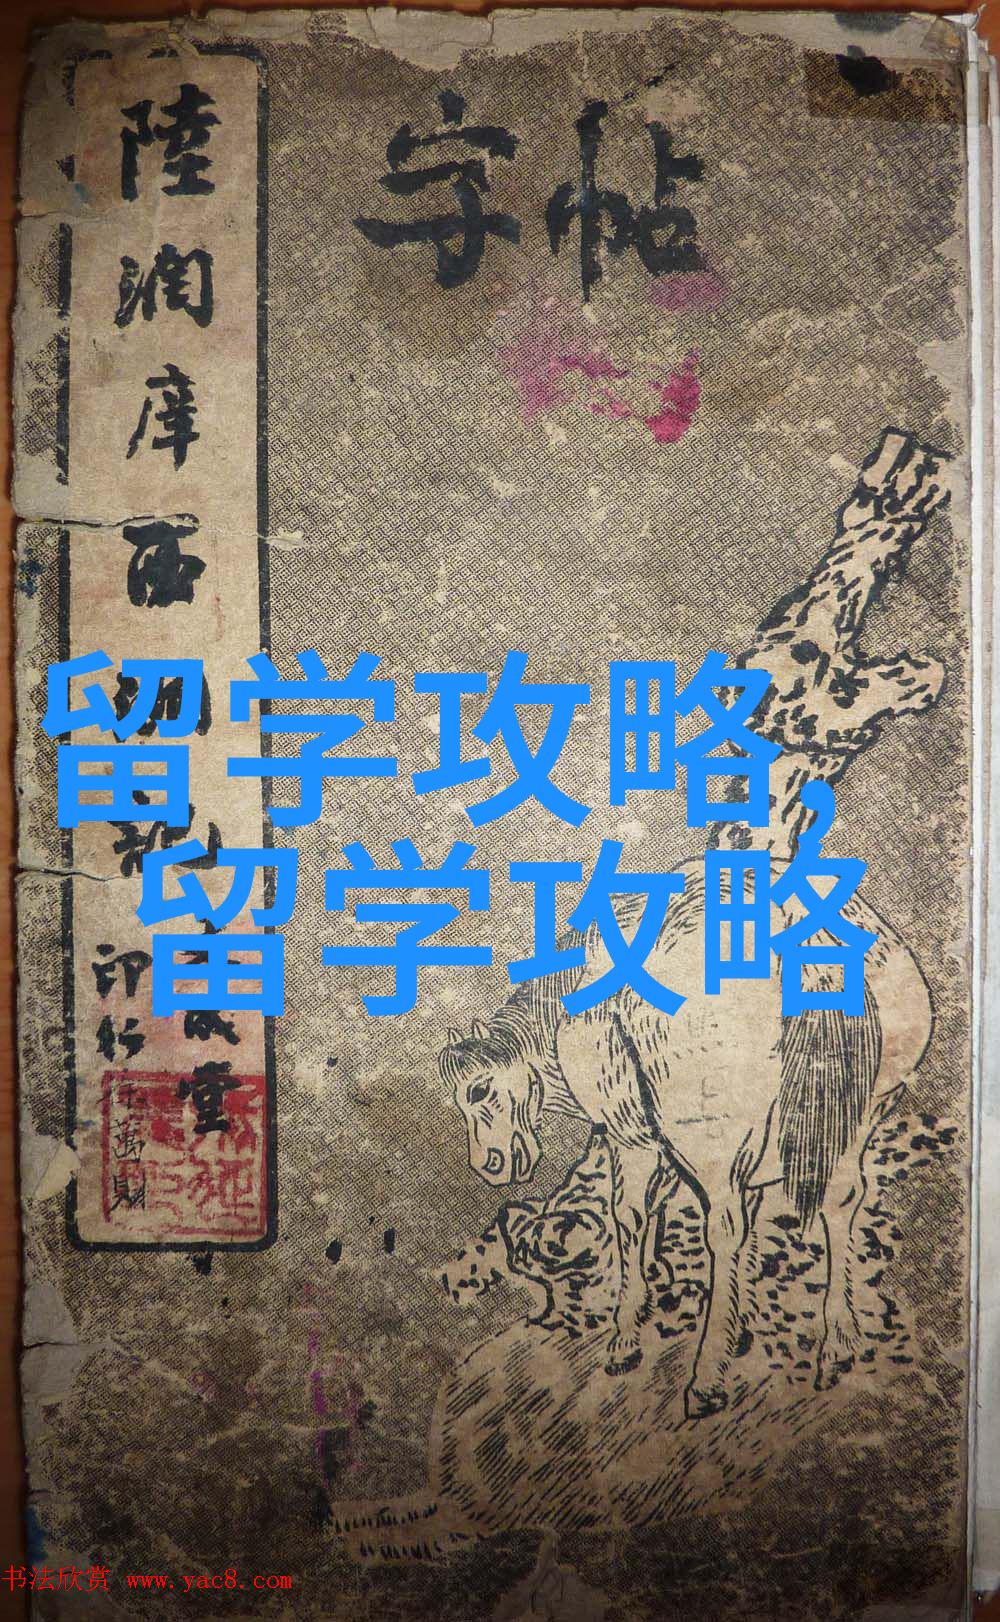 字帖
陸潤庠西湖記
成堂
印行
徐萬財
留学攻略,
留学攻略
书法欣赏 www.yac8.com